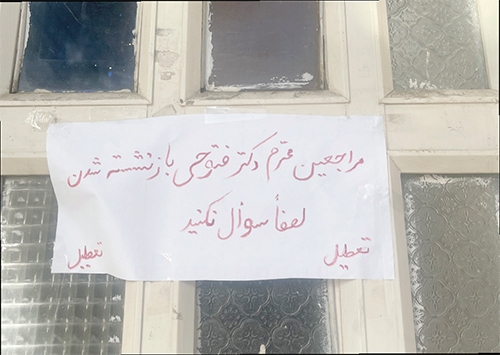 مراجعین محترم دکتر فتوحی بازنشسته شدن
لطفاً سوال نکنید
تعطیل تعطیل